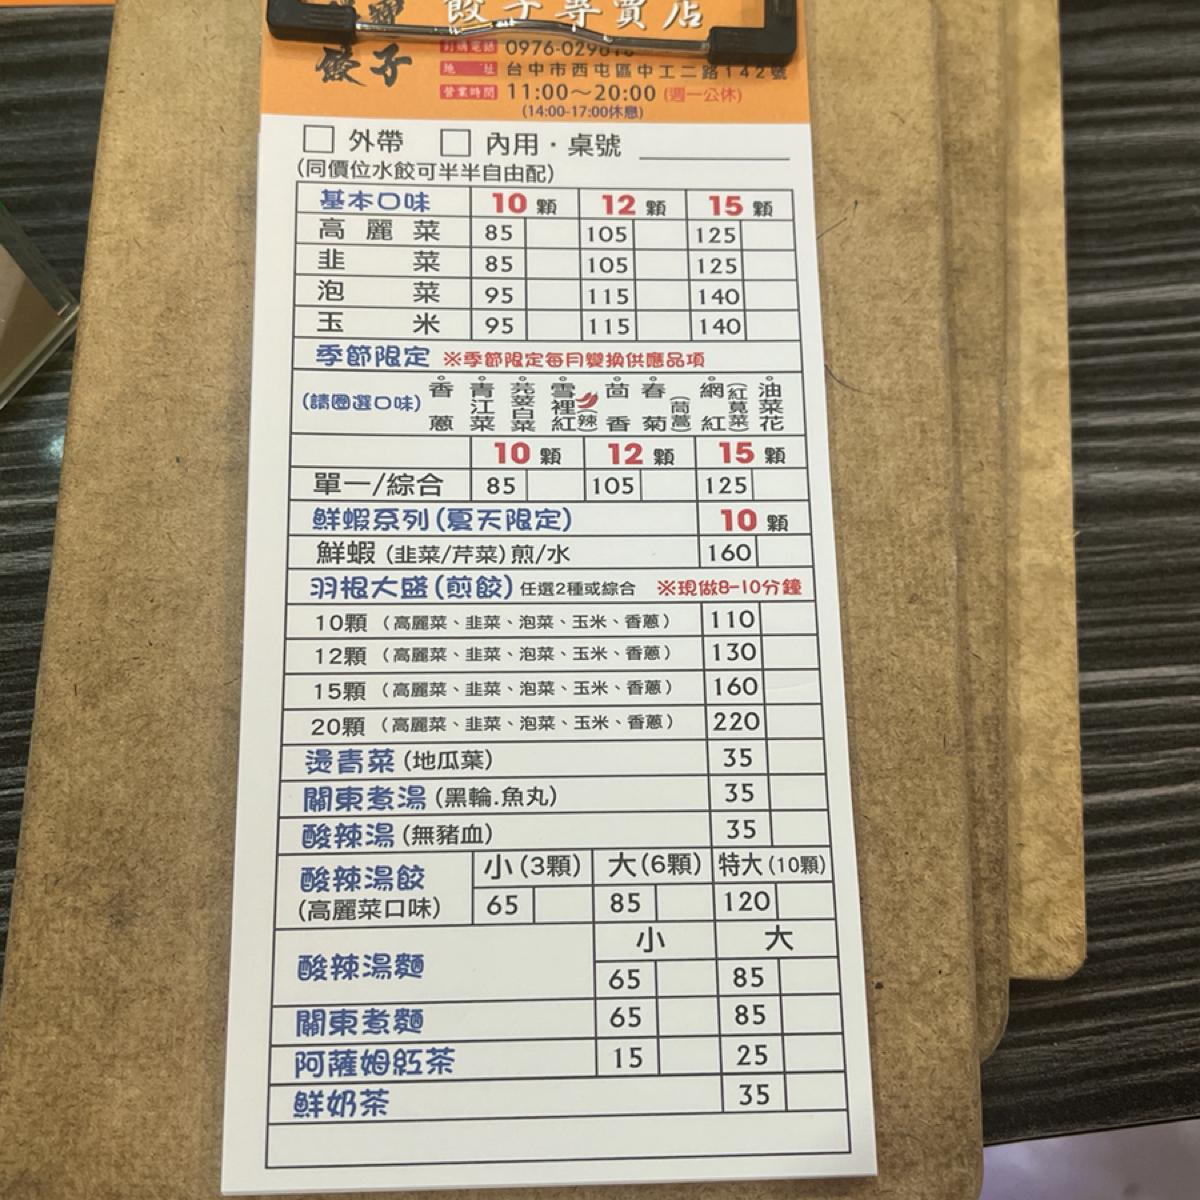 餃子專賣店
餃子
訂購電話 0976-029
地址 台中市西屯區中工二路142號
營業時間 11:00～20:00 (週一公休)
(14:00-17:00休息)
□ 外帶 □ 內用·桌號
(同價位水餃可半半自由配)
基本口味 10顆 12顆 15顆
高麗菜 85 105 125
韭菜 85 105 125
泡菜 95 115 140
玉米 95 115 140
季節限定 ※季節限定每月變換供應品項
(請圈選口味) 香蔥 青江菜 芫荽白菜 雪裡紅(辣) 茴香 春菊(茼蒿) 網紅(紅莧菜) 油菜花
10顆 12顆 15顆
單一/綜合 85 105 125
鮮蝦系列(夏天限定) 10顆
鮮蝦(韭菜/芹菜)煎/水 160
羽根大盛(煎餃) 任選2種或綜合 ※現做8-10分鐘
10顆(高麗菜、韭菜、泡菜、玉米、香蔥) 110
12顆(高麗菜、韭菜、泡菜、玉米、香蔥) 130
15顆(高麗菜、韭菜、泡菜、玉米、香蔥) 160
20顆(高麗菜、韭菜、泡菜、玉米、香蔥) 220
燙青菜(地瓜葉) 35
關東煮湯(黑輪.魚丸) 35
酸辣湯(無豬血) 35
酸辣湯餃 小(3顆) 大(6顆) 特大(10顆)
(高麗菜口味) 65 85 120
小 大
酸辣湯麵 65 85
關東煮麵 65 85
阿薩姆紅茶 15 25
鮮奶茶 35